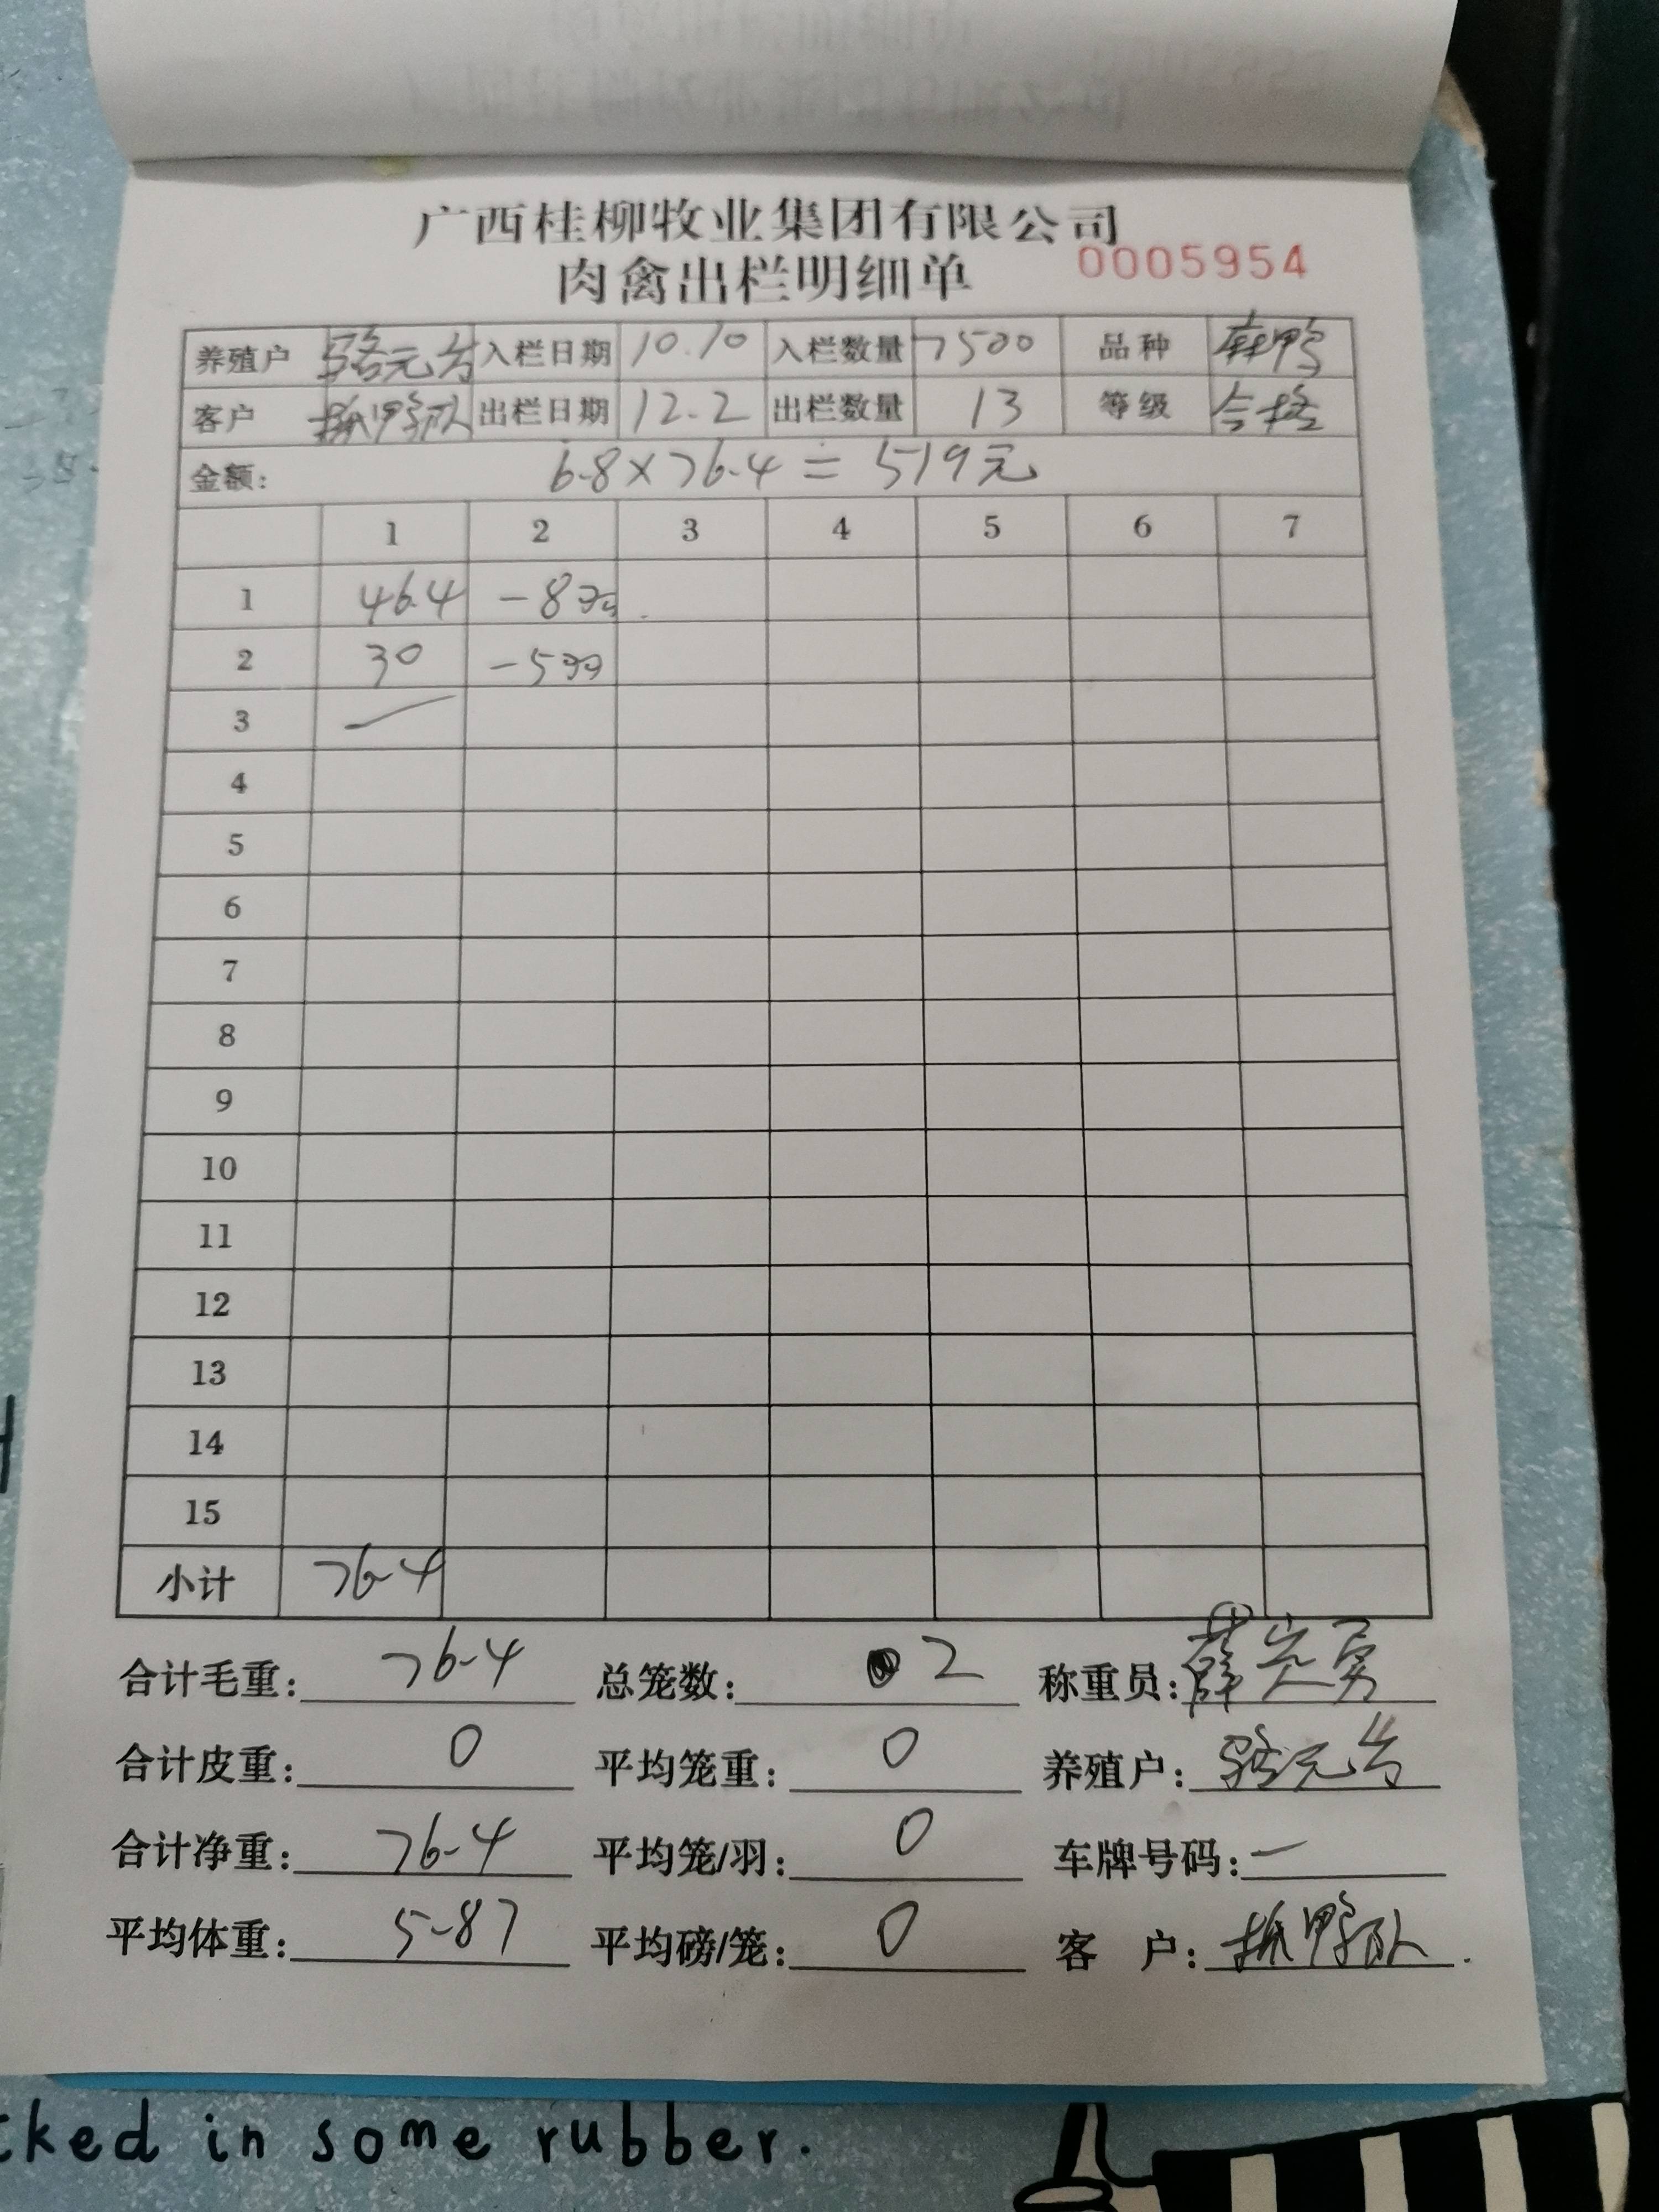 广西桂柳牧业集团有限公司
肉禽出栏明细单 0005954
养殖户 骆元台 入栏日期 10.10 入栏数量 7500 品种 麻鸭
客户 抓鸭队 出栏日期 12.2 出栏数量 13 等级 合格
金额: 6.8×76.4=519元
1 2 3 4 5 6 7
1 46.4 -8羽
2 30 -5羽
3
4
5
6
7
8
9
10
11
12
13
14
15
小计 76.4
合计毛重: 76.4 总笼数: 2 称重员:
合计皮重: 0 平均笼重: 0 养殖户: 骆元台
合计净重: 76.4 平均笼/羽: 0 车牌号码: 一
平均体重: 5.87 平均磅/笼: 0 客 户: 抓鸭队.
cked in some rubber.